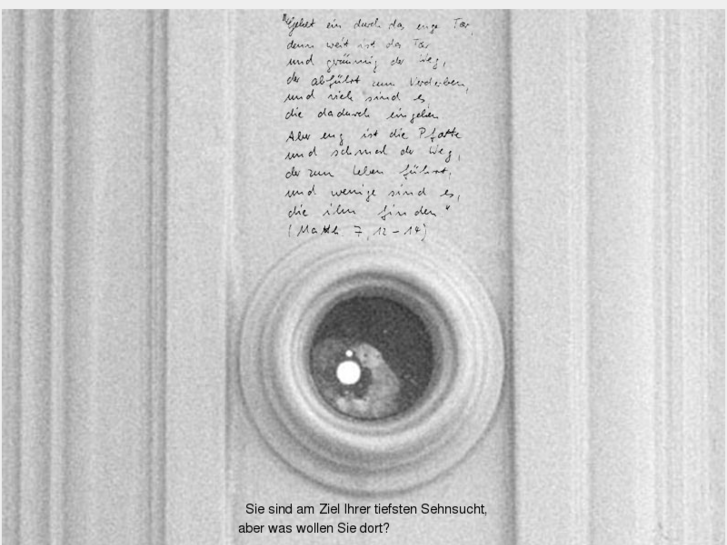 "Gehet ein durch das enge Tor
denn weit ist das Tor
und geräumig der Weg,
der abführt zum Verderben,
und viele sind es
die dadurch eingehen
Aber eng ist die Pforte
und schmal der Weg,
der zum Leben führt,
und wenige sind es,
die ihn finden"
(Matth. 7, 12-14)
Sie sind am Ziel Ihrer tiefsten Sehnsucht,
aber was wollen Sie dort?